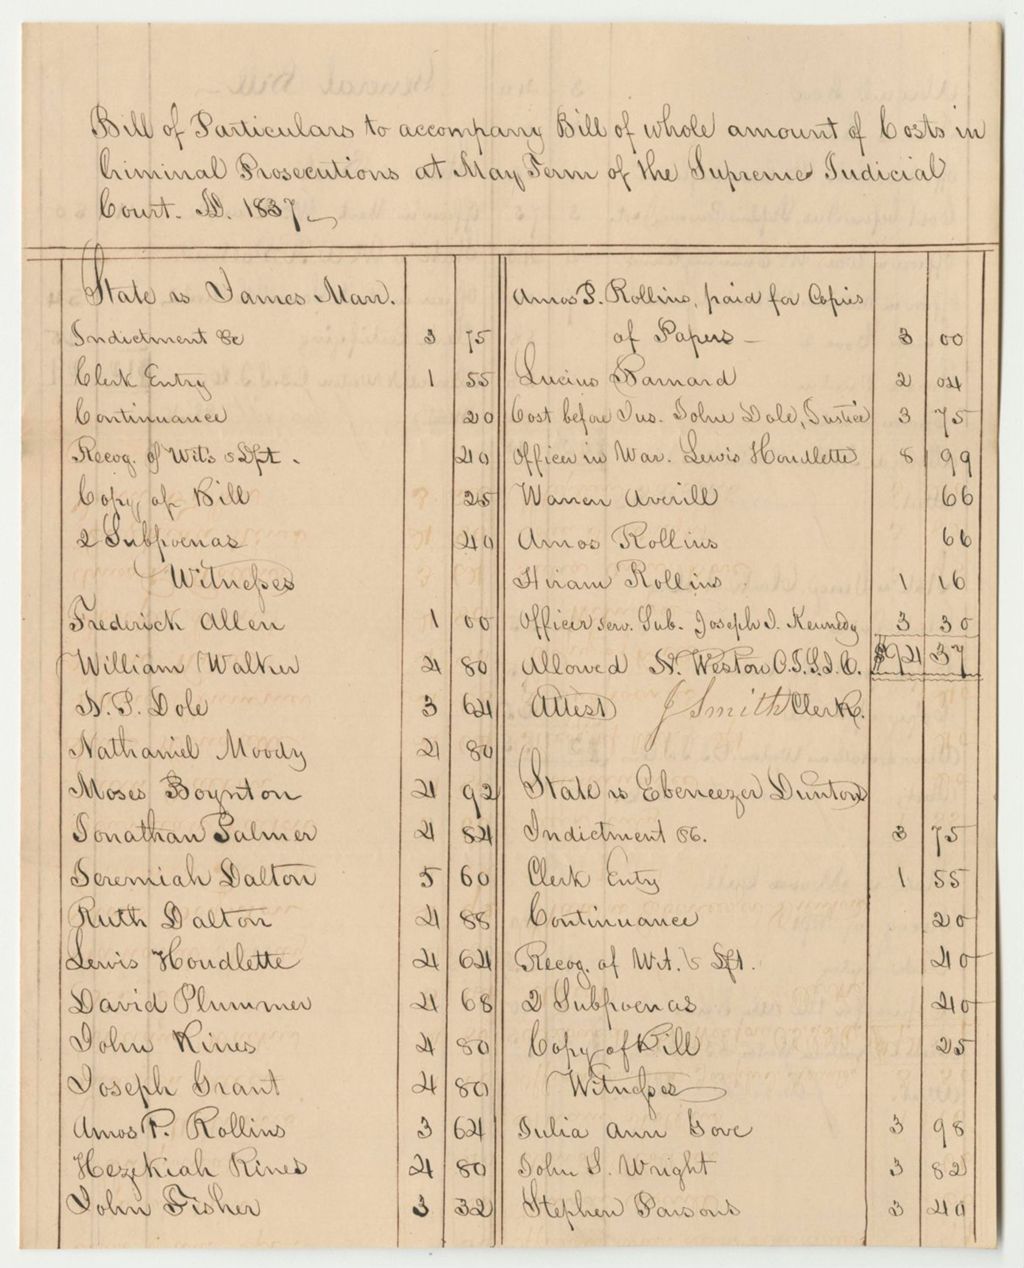 Bill of Particulars to accompany Bill of whole amount of Costs in
Criminal Prosecutions at May Term of the Supreme Judicial
Court. AD. 1837
State vs James Marr.
Indictment &c 3 75
Clerk Entry 1 55
Continuance 20
Recog. of Wit's & Dft. 40
Copy of Bill 25
2 Subpoenas 40
Witnesses
Frederick Allen 1 00
William Walker 4 80
N. P. Dole 3 64
Nathaniel Moody 4 80
Moses Boynton 4 92
Jonathan Palmer 4 84
Jeremiah Dalton 5 60
Ruth Dalton 4 88
Lewis Houdlette 4 64
David Plummer 4 68
John Rines 4 80
Joseph Grant 4 80
Amos P. Rollins 3 64
Hezekiah Rines 4 80
John Fisher 3 32
Amos P. Rollins, paid for Copies
of Papers 3 00
Lucius Barnard 2 04
Cost before Jus. John Dole, Justice 3 75
Officer in War. Lewis Houdlette 8 99
Warren Averill 66
Amos Rollins 66
Hiram Rollins 1 16
Officer serv. Sub. Joseph J. Kennedy 3 30
Allowed N. Weston C.J.S.J.C. $94 37
Attest J Smith Clerk.
State vs Ebeneezer Dunton
Indictment &c. 3 75
Clerk Entry 1 55
Continuance 20
Recog. of Wit. & Dft. 40
2 Subpoenas 40
Copy of Bill 25
Witnesses
Julia Ann Gove 3 98
John S. Wright 3 82
Stephen Parsons 3 40